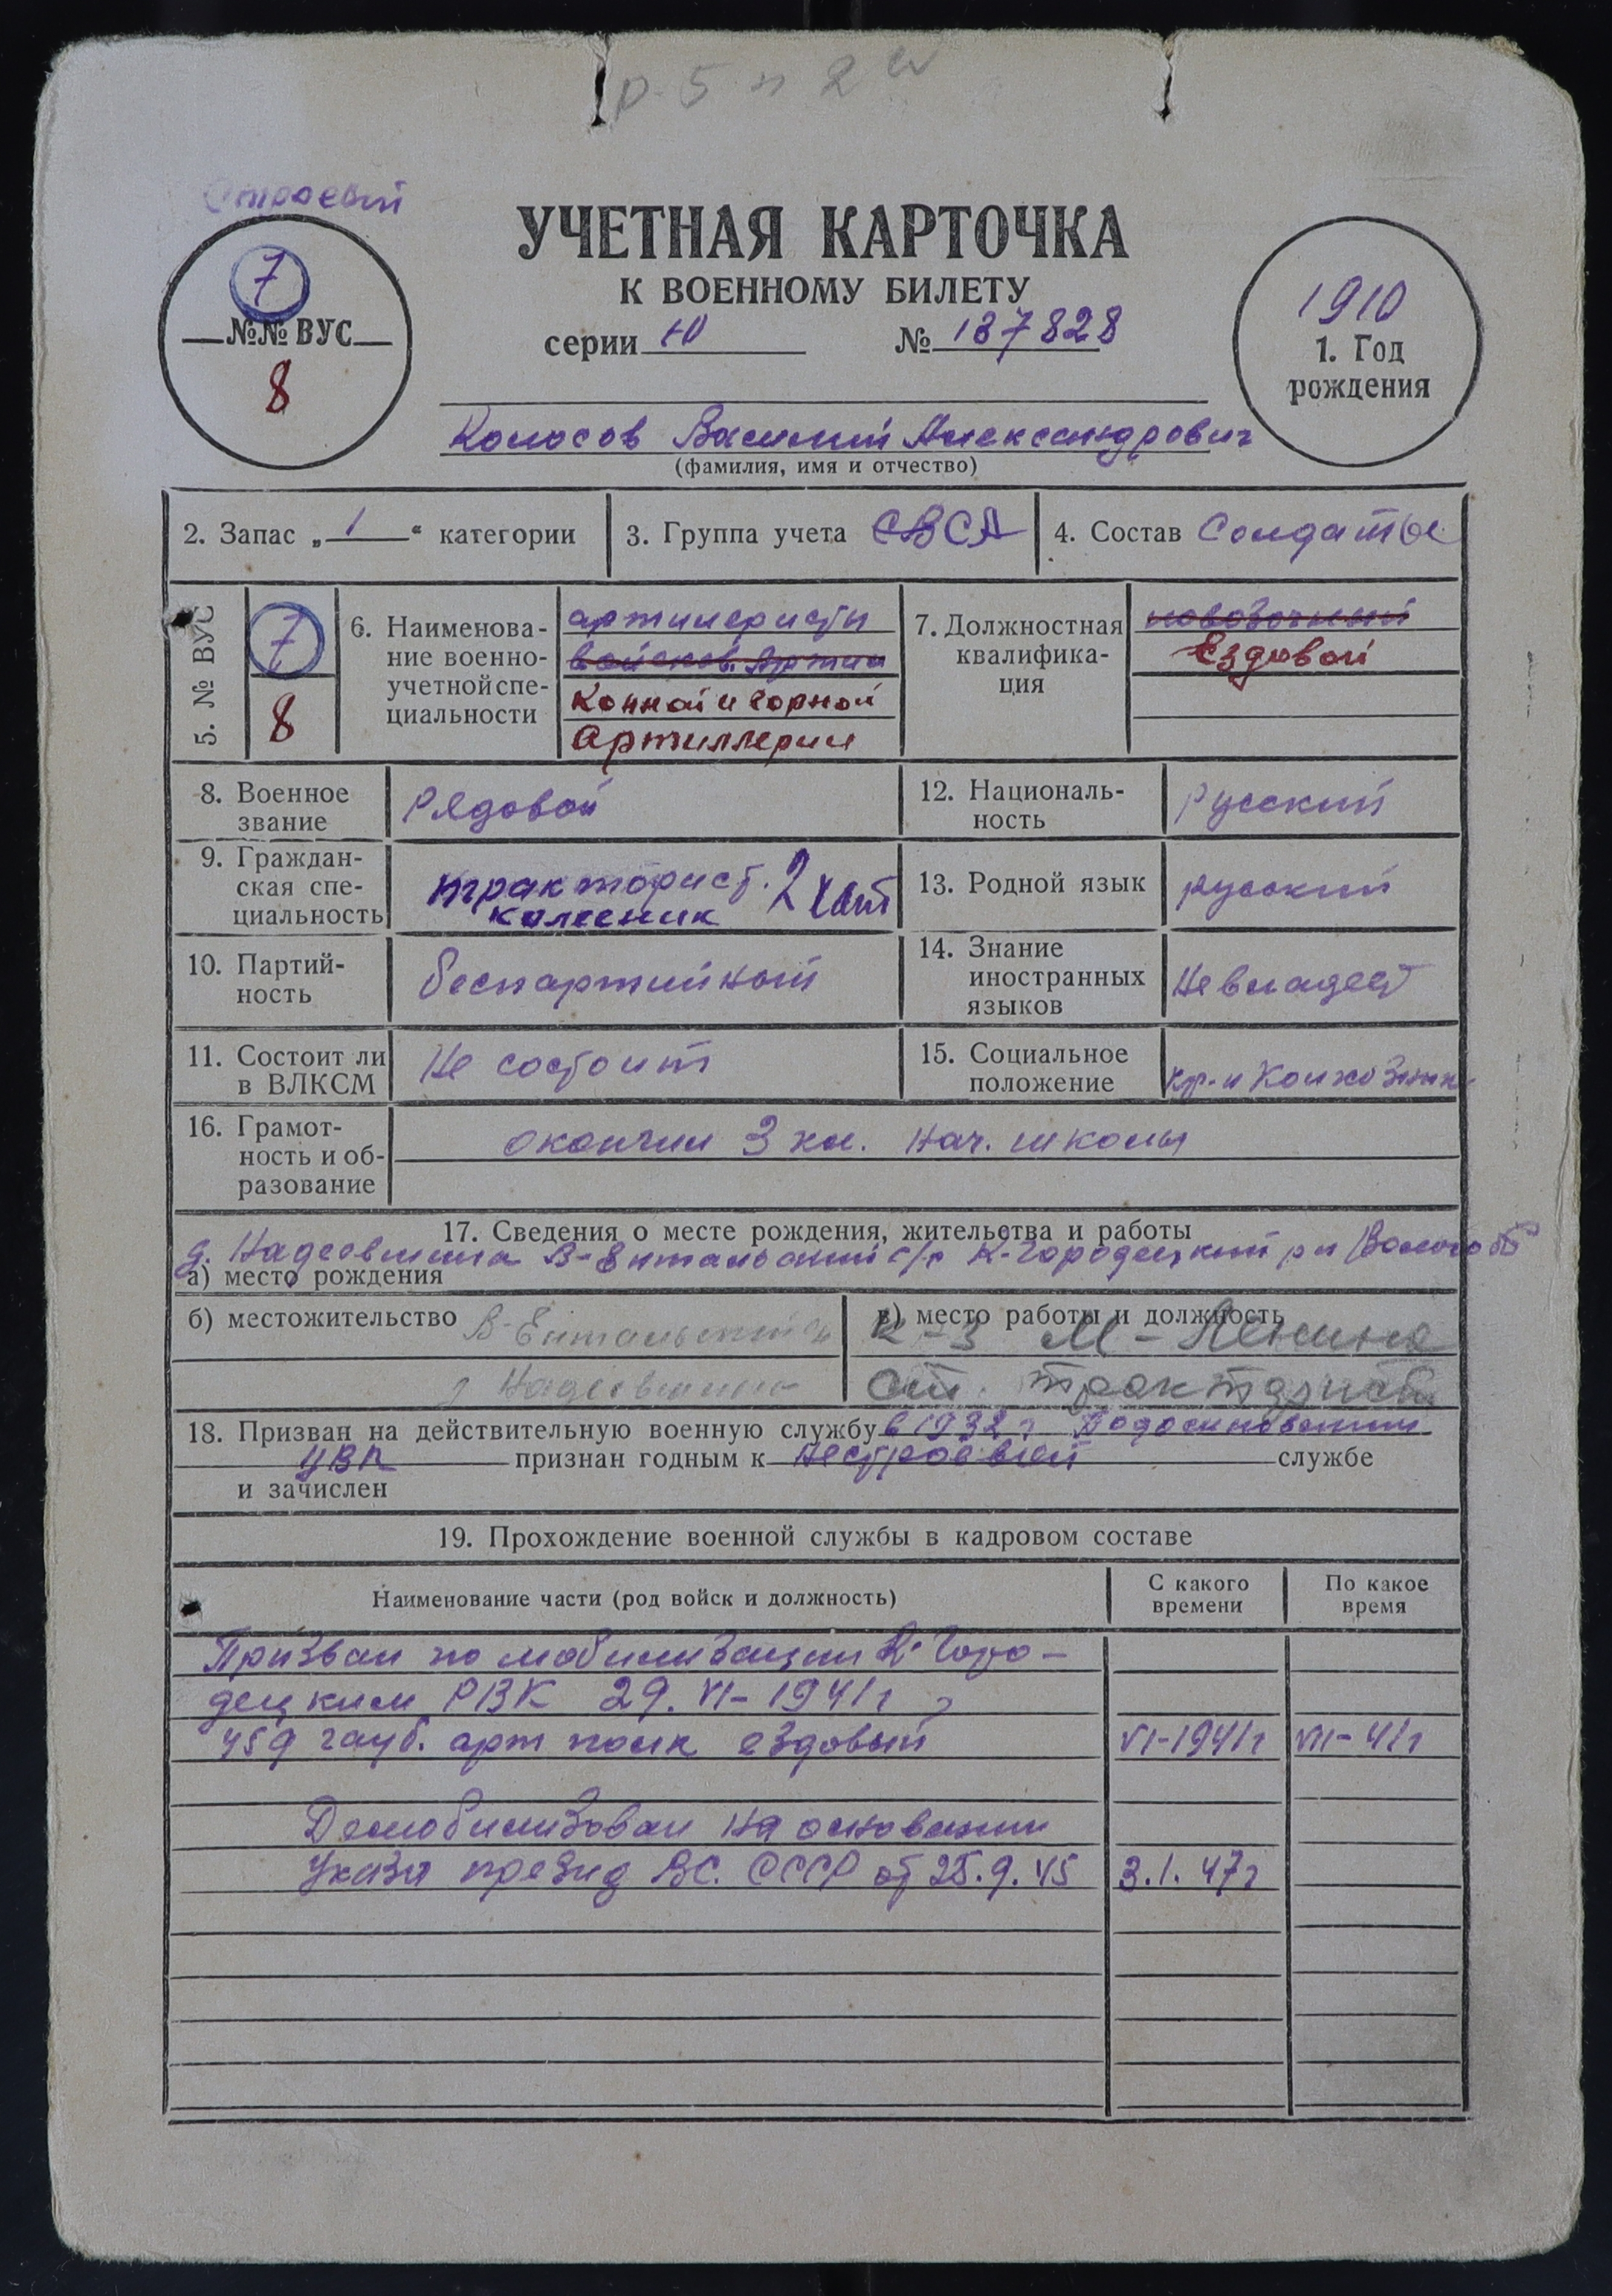 р-5 п 2
Строевой
УЧЕТНАЯ КАРТОЧКА
К ВОЕННОМУ БИЛЕТУ
серии Ю № 187828
7
№№ ВУС
8
1910
1. Год
рождения
Колосов Василий Александрович
(фамилия, имя и отчество)
2. Запас „1“ категории
3. Группа учета СВСА
4. Состав Солдаты
5. № ВУС
7
8
6. Наименова-
ние военно-
учетной спе-
циальности
артиллеристы
войсков. Артил
Конной и горной
Артиллерии
7. Должностная
квалифика-
ция
Ездовой
8. Военное
звание
Рядовой
12. Националь-
ность
русский
9. Граждан-
ская спе-
циальность
тракторист. 2
колесник
13. Родной язык
русский
10. Партий-
ность
беспартийный
14. Знание
иностранных
языков
Не владеет
11. Состоит ли
в ВЛКСМ
Не состоит
15. Социальное
положение
кр-н Колхозник
16. Грамот-
ность и об-
разование
окончил 3 кл. нач. школы
17. Сведения о месте рождения, жительства и работы
д. Надеевшина В-Ентальский с/с К-Городецкий р н Волого об
а) место рождения
б) местожительство В-Ентальский
д Надеевшина
в) место работы и должность
к-з М-Ленина
ст. тракторист
18. Призван на действительную военную службу в 1932 г Подосиновским
УВК признан годным к нестроевой службе
и зачислен
19. Прохождение военной службы в кадровом составе
Наименование части (род войск и должность)
С какого
времени
По какое
время
Призван по мобилизации К-Горо-
децким РВК 29. VI-1941 г
459 гауб. арт полк ездовый VI-1941 г VIII-41 г
Демобилизован на основании
Указа презид ВС. СССР от 25.9.45 3.1.47 г